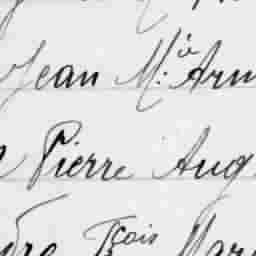 Jean M.ie Arm
Pierre Aug
dre Fçois Mar